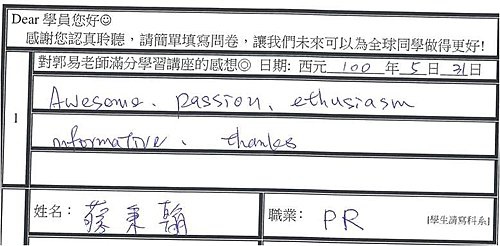 Dear 學員您好☺
感謝您認真聆聽，請簡單填寫問卷，讓我們未來可以為全球同學做得更好!
1 對郭易老師滿分學習講座的感想◎ 日期: 西元 100 年 5 日 31 日
Awesome、passion、ethusiasm
informative、thanks
姓名： 蔡秉翰 職業： PR [學生請寫科系]